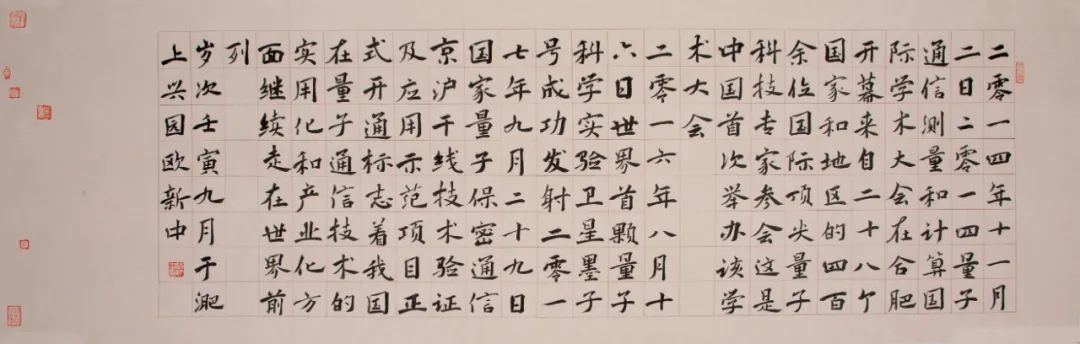 二零一四年十一月
二日二零一四量子
通信测量和计算国
际学术大会在合肥
开幕来自二十八个
国家和地区的四百
余位国际顶尖量子
科技专家参会这是
中国首次举办该学
术大会
二零一六年八月十
六日世界首颗量子
科学实验卫星墨子
号成功发射二零一
七年九月二十九日
国家量子保密通信
京沪干线技术验证
及应用示范项目正
式开通标志着我国
在量子通信技术的
实用化和产业化方
面继续走在世界前
列
岁次壬寅九月于淝
上兴园欧新中